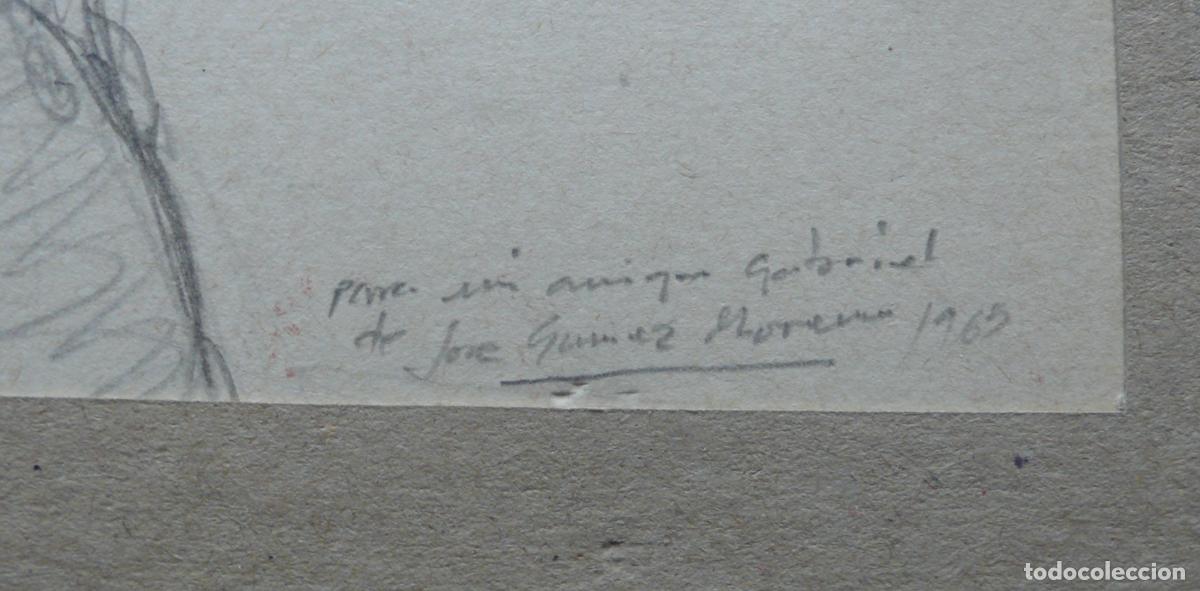 para mi amigo Gabriel
de Jose Gomez Moreno 1965
todocoleccion